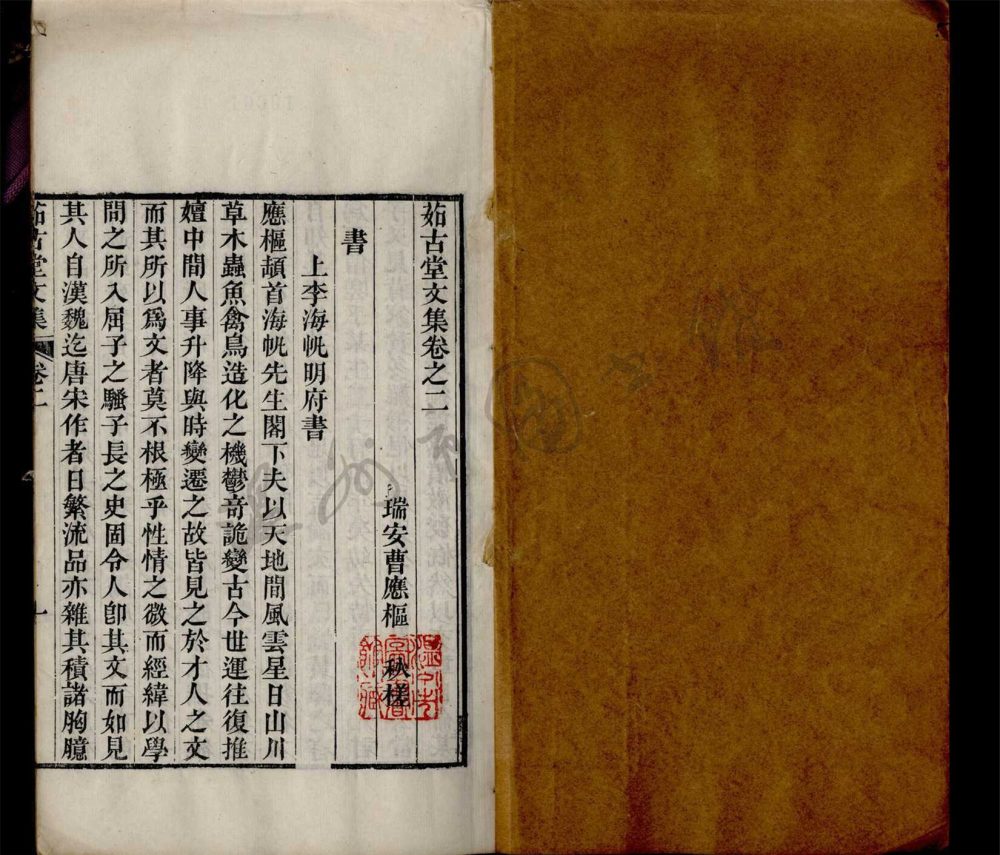 茹古堂文集卷之二
瑞安曹應樞 秋槎
書
上李海帆明府書
應樞頓首海帆先生閣下夫以天地間風雲星日山川
草木蟲魚禽鳥造化之機鬱奇詭變古今世運往復推
嬗中間人事升降與時變遷之故皆見之於才人之文
而其所以爲文者莫不根極乎性情之微而經緯以學
問之所入屈子之騷子長之史固令人卽其文而如見
其人自漢魏迄唐宋作者日繁流品亦雜其積諸胸臆
茹古堂文集 卷二